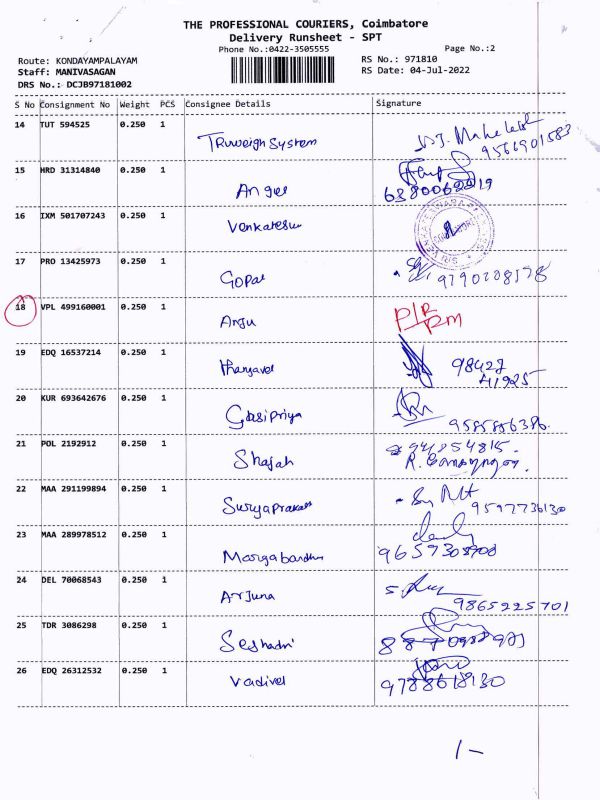 THE PROFESSIONAL COURIERS, Coimbatore
Delivery Runsheet - SPT
Phone No.:0422-3505555
Page No.:2
Route: KONDAYAMPALAYAM
RS No.: 971810
Staff: MANIVASAGAN
RS Date: 04-Jul-2022
DRS No.: DCJB97181002
S No Consignment No Weight PCS Consignee Details Signature
14 TUT 594525 0.250 1 Truweigh System
9566901583
15 HRD 31314840 0.250 1 Angel
16 IXM 501707243 0.250 1 Venkatesun
17 PRO 13425973 0.250 1 Gopal
18 VPL 499160001 0.250 1 Anju P/R RM
19 EDQ 16537214 0.250 1 Thangavel 98427
41925
20 KUR 693642676 0.250 1 Gasipriya
9585856386.
21 POL 2192912 0.250 1 Shajah
22 MAA 291199894 0.250 1 Suryaprakash
9597736130
23 MAA 289978512 0.250 1 Margabandhu
24 DEL 70068543 0.250 1 Arjuna
9865225701
25 TDR 3086298 0.250 1 Seshadri
26 EDQ 26312532 0.250 1 Vadivel
9788618130
1/-